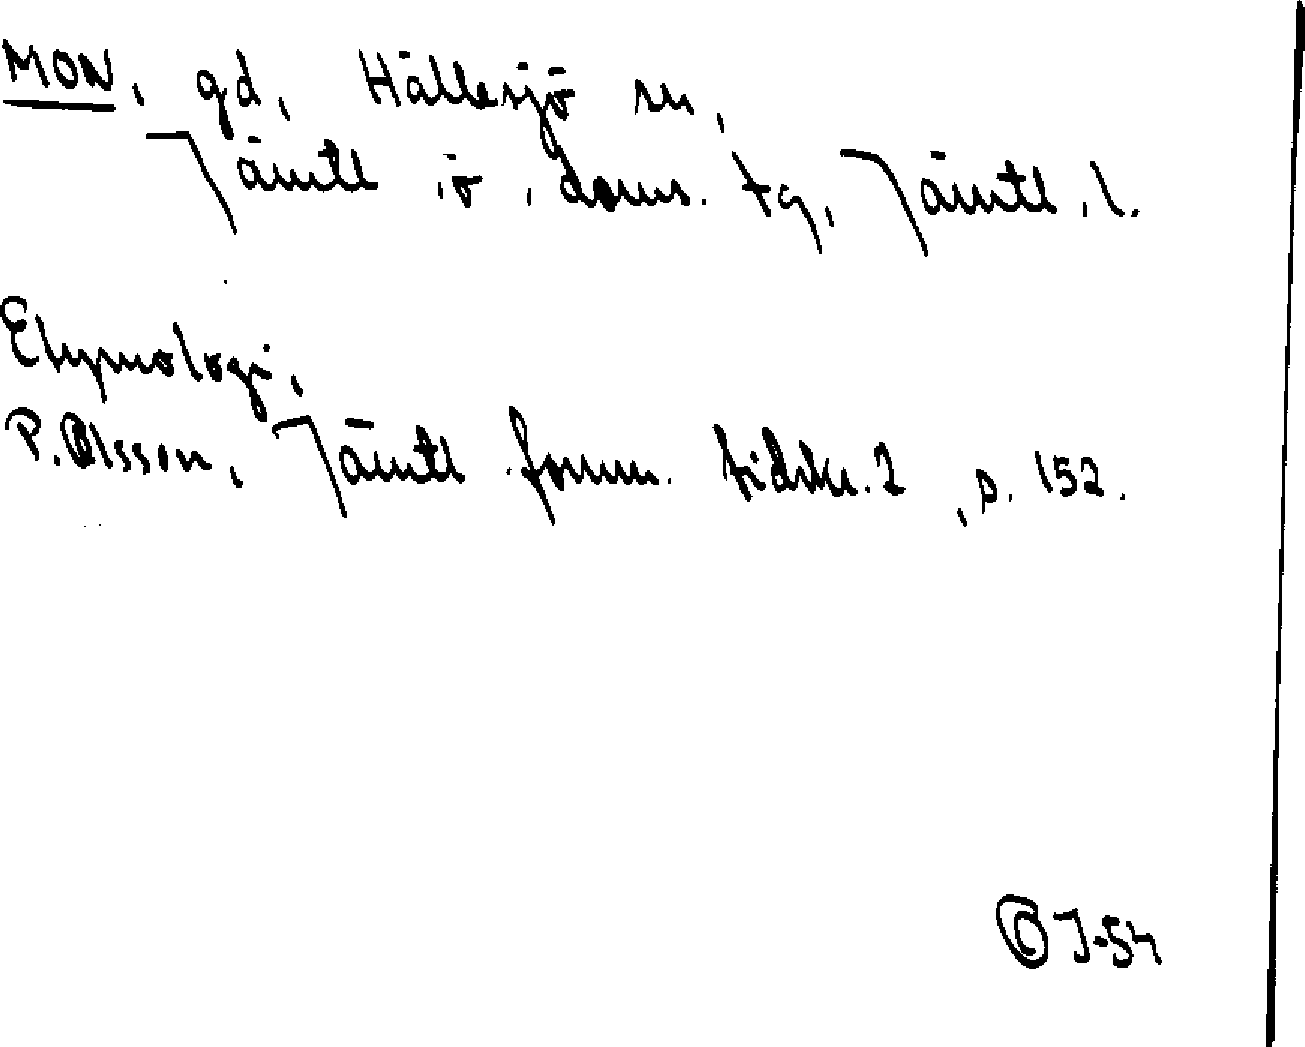 MON, gd, Hällesjö sn,
Jämtl. ö. doms. tg, Jämtl. l.
Etymologi,
P. Olsson, Jämtl. fornm. tidskr. 2, s. 152.
OJ-54